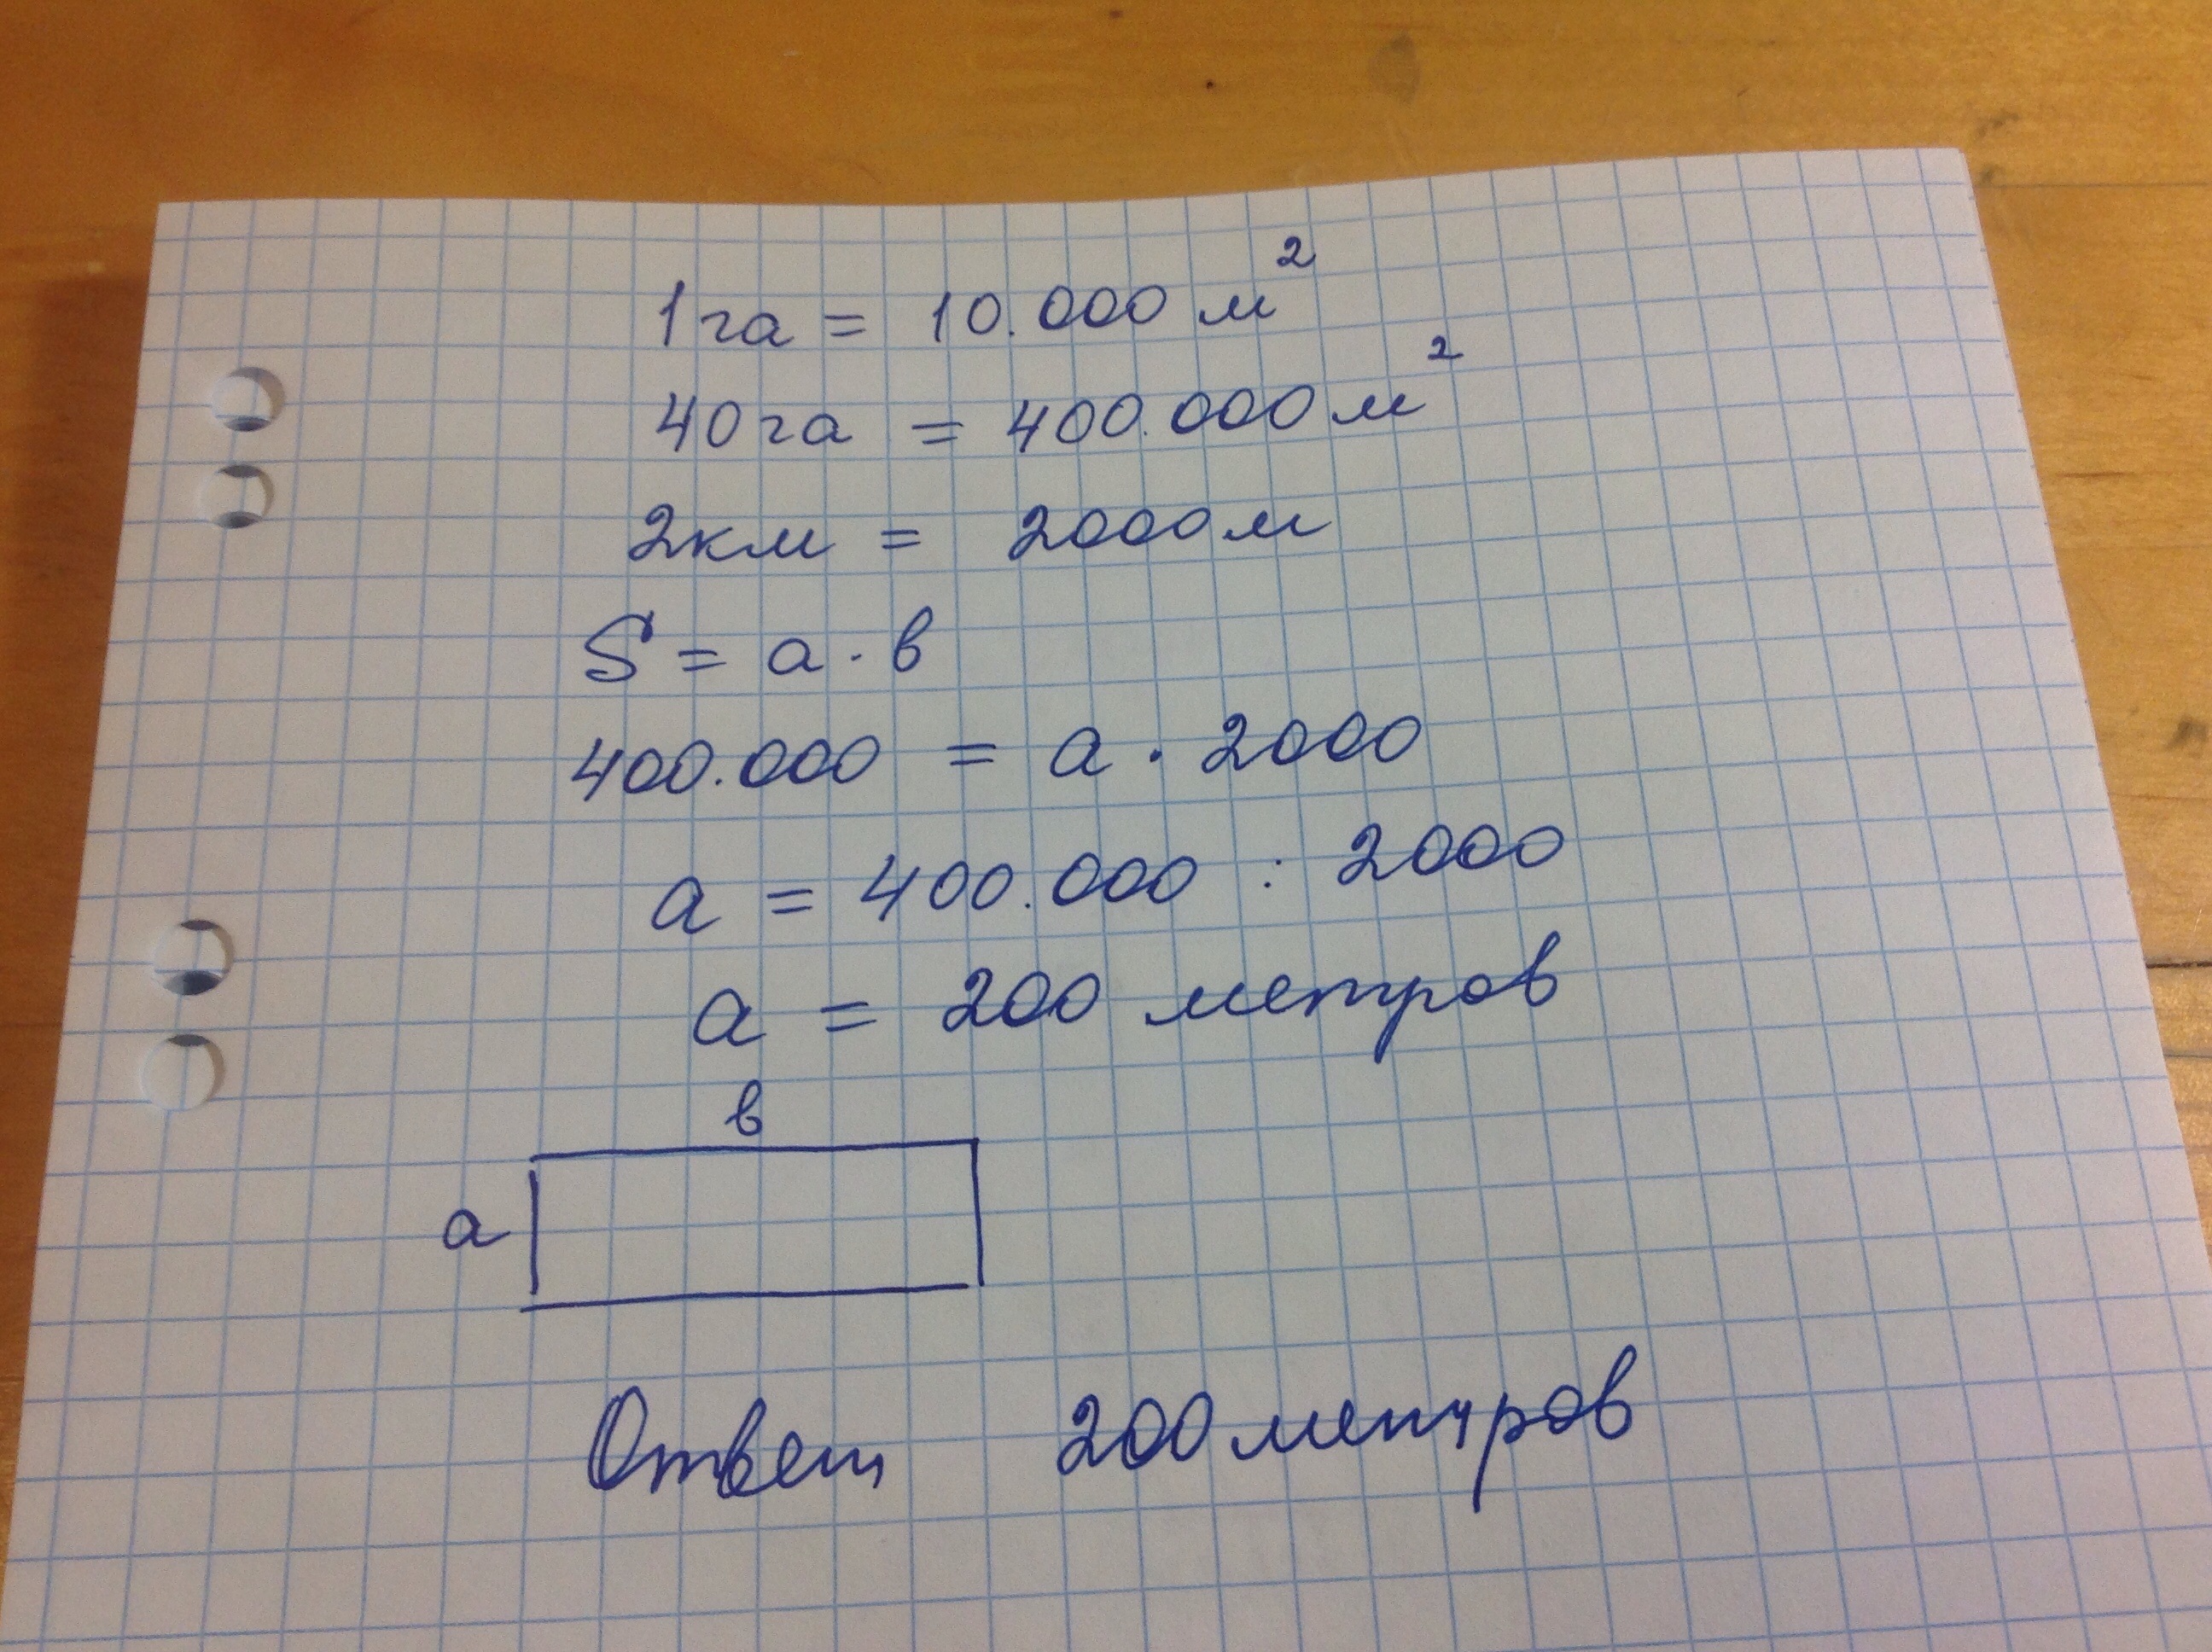 1га = 10.000 м²
40га = 400.000 м²
2км = 2000м
S = а · в
400.000 = а · 2000
а = 400.000 : 2000
а = 200 метров
в
а
Ответ 200 метров